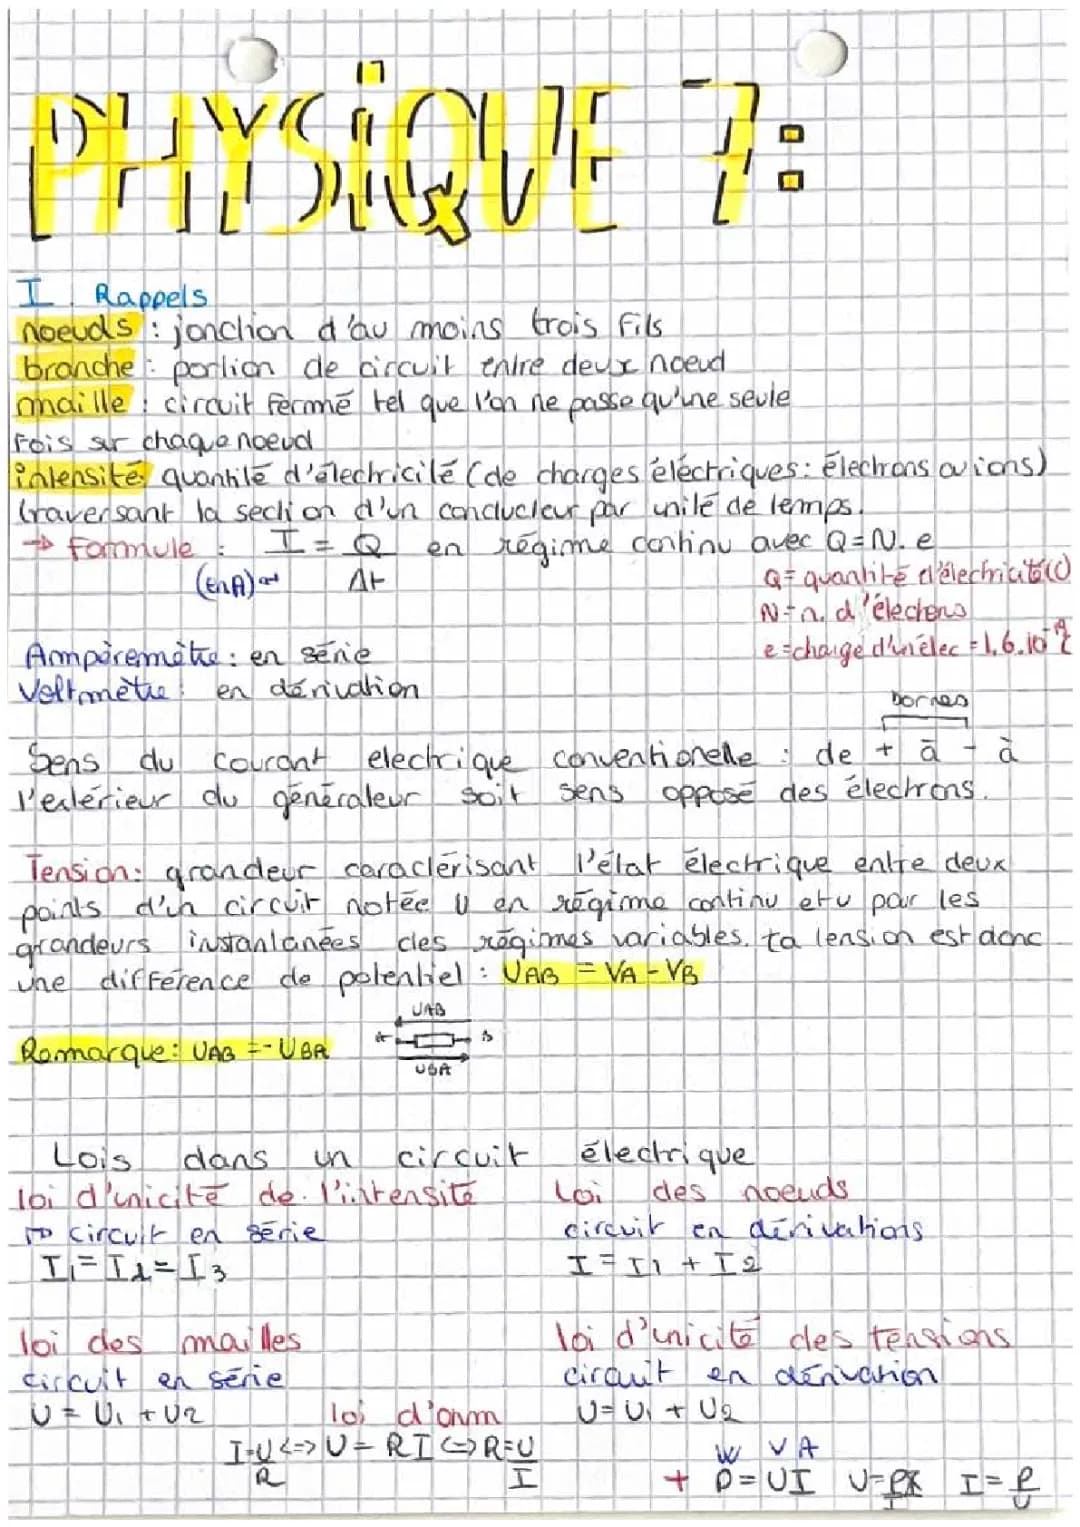 PHYSiQUE 7:
I. Rappels
noeuds : jonction d'au moins trois fils
branche : portion de circuit entre deux noeud
maille : circuit fermé tel que l'on ne passe qu'une seule
fois sur chaque noeud
intensité: quantité d'électricité (de charges électriques: électrons ou ions)
traversant la section d'un conducteur par unité de temps.
→ formule : I = Q/Δt en régime continu avec Q=N.e
(en A)
Q= quantité d'électricité (C)
N= n. d'électrons
e=charge d'un élec = 1,6.10⁻¹⁹ C
Ampèremètre : en série
Voltmètre : en dérivation
bornes
Sens du courant electrique conventionelle : de + à - à
l'extérieur du générateur soit sens opposé des électrons.
Tension: grandeur caractérisant l'état électrique entre deux
points d'un circuit notée U en régime continu et u par les
grandeurs instantanées des régimes variables. ta tension est donc
une différence de potentiel : UAB = VA - VB
UAB
Remarque: UAB = - UBA
A B
UBA
Lois dans un circuit électrique
loi d'unicité de l'intensité
Loi des noeuds
→ circuit en série
circuit en dérivations
I1 = I2 = I3
I = I1 + I2
loi des mailles
loi d'unicité des tensions
circuit en série
circuit en dérivation
U = U1 + U2
loi d'onm
U = U1 + U2
I=U/R <=> U = RI <=> R=U/I
W V A
+ P=UI U=P/I I=P/U